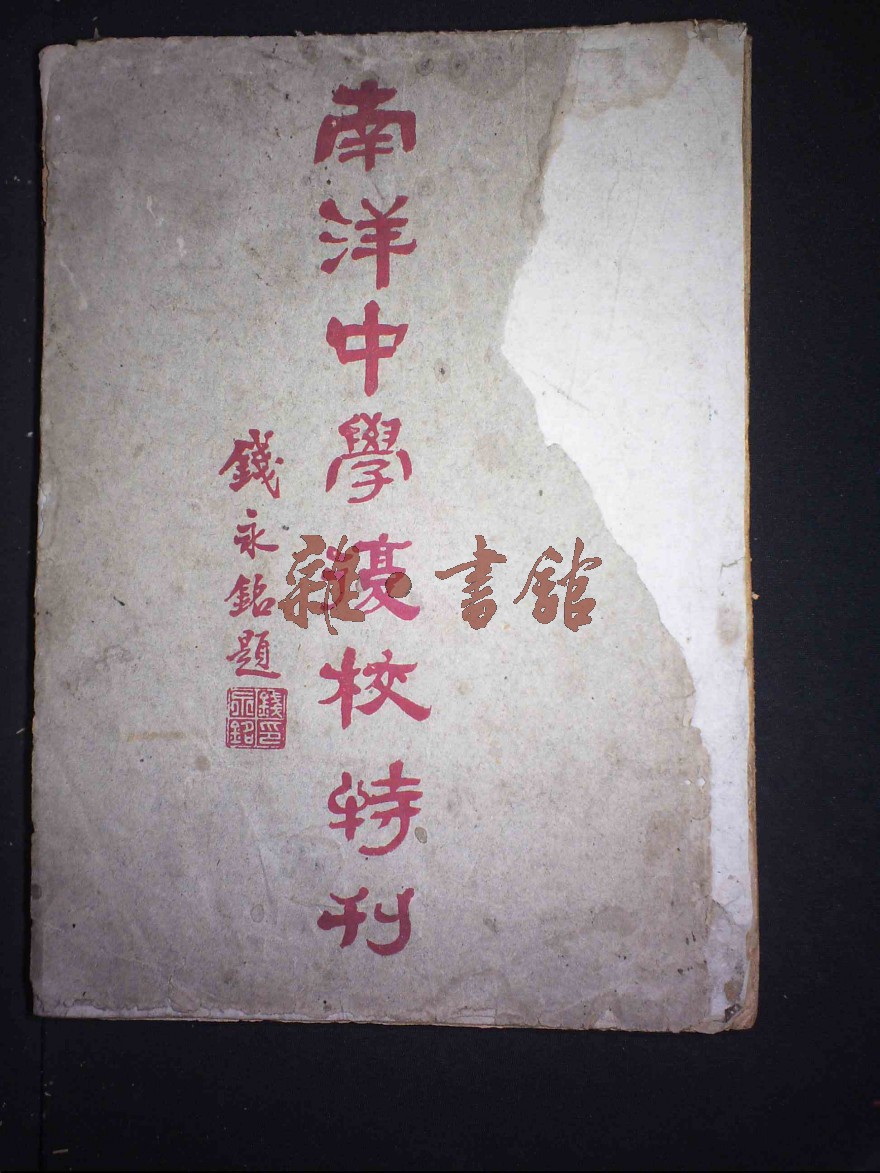 南洋中學復校特刊
錢永銘題
錢印永銘
雜·書館